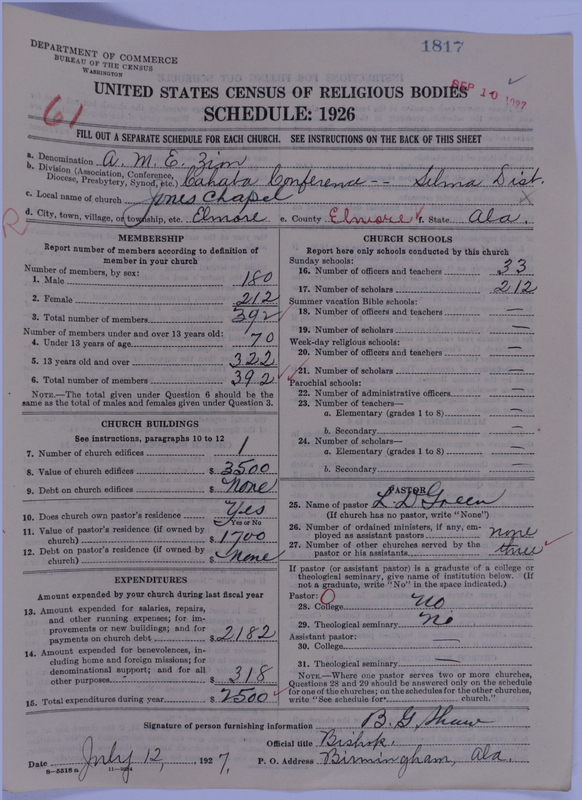 1817
DEPARTMENT OF COMMERCE
BUREAU OF THE CENSUS
WASHINGTON
SEP 10 1927
UNITED STATES CENSUS OF RELIGIOUS BODIES
SCHEDULE: 1926
61
FILL OUT A SEPARATE SCHEDULE FOR EACH CHURCH. SEE INSTRUCTIONS ON THE BACK OF THIS SHEET
a. Denomination A. M. E. Zion
b. Division (Association, Conference, Diocese, Presbytery, Synod, etc.) Cahaba Conference -- Selma Dist.
c. Local name of church Jones Chapel
d. City, town, village, or township, etc. Elmore e. County Elmore f. State Ala.
R
MEMBERSHIP
Report number of members according to definition of member in your church
Number of members, by sex:
1. Male 180
2. Female 212
3. Total number of members 392
Number of members under and over 13 years old:
4. Under 13 years of age 70
5. 13 years old and over 322
6. Total number of members 392
NOTE.—The total given under Question 6 should be the same as the total of males and females given under Question 3.
CHURCH BUILDINGS
See instructions, paragraphs 10 to 12
7. Number of church edifices 1
8. Value of church edifices $ 3500
9. Debt on church edifices $ None
10. Does church own pastor's residence Yes
Yes or No
11. Value of pastor's residence (if owned by church) $ 1700
12. Debt on pastor's residence (if owned by church) $ None
EXPENDITURES
Amount expended by your church during last fiscal year
13. Amount expended for salaries, repairs, and other running expenses; for improvements or new buildings; and for payments on church debt $ 2182
14. Amount expended for benevolences, including home and foreign missions; for denominational support; and for all other purposes $ 318
15. Total expenditures during year $ 2500
CHURCH SCHOOLS
Report here only schools conducted by this church
Sunday schools:
16. Number of officers and teachers 33
17. Number of scholars 212
Summer vacation Bible schools:
18. Number of officers and teachers —
19. Number of scholars —
Week-day religious schools:
20. Number of officers and teachers —
21. Number of scholars —
Parochial schools:
22. Number of administrative officers —
23. Number of teachers—
a. Elementary (grades 1 to 8) —
b. Secondary —
24. Number of scholars—
a. Elementary (grades 1 to 8) —
b. Secondary —
PASTOR
25. Name of pastor L. D. Green
(If church has no pastor, write "None")
26. Number of ordained ministers, if any, employed as assistant pastors none
27. Number of other churches served by the pastor or his assistants three
If pastor (or assistant pastor) is a graduate of a college or theological seminary, give name of institution below. (If not a graduate, write "No" in the space indicated.)
Pastor: 0
28. College No
29. Theological seminary No
Assistant pastor:
30. College —
31. Theological seminary —
NOTE.—Where one pastor serves two or more churches, Questions 28 and 29 should be answered only on the schedule for one of the churches; on the schedules for the other churches, write "See schedule for church."
Signature of person furnishing information B. G. Shaw
Official title Bishop.
Date July 12, 1927. P. O. Address Birmingham, Ala.
8-5518a